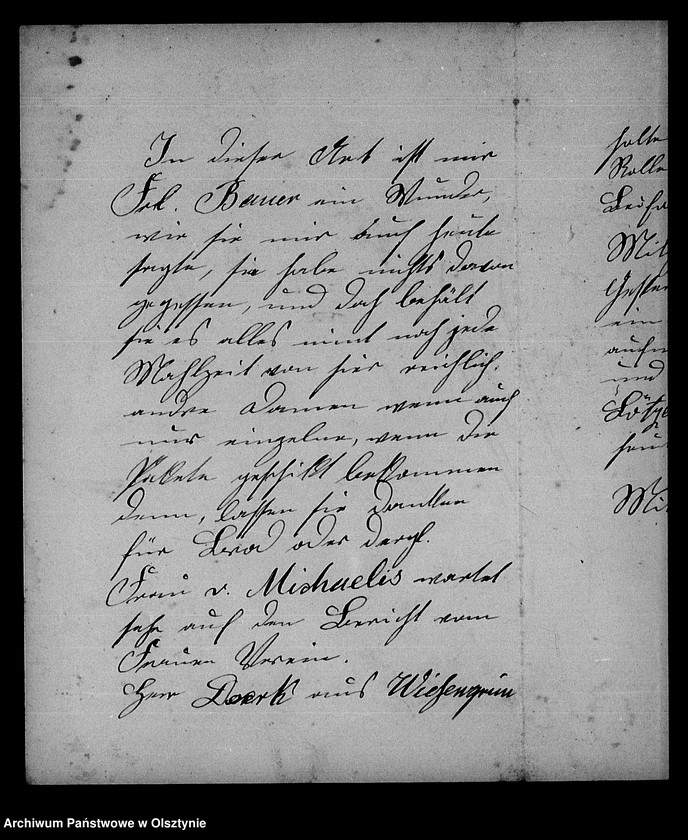 In dieser Art ist mir
Frl. Bauer ein Wunder,
wie sie mir auch heute
sagte, sie habe nichts davon
gegessen, und doch behält
sie es alles nimt noch jede
Mahlzeit von hier reichlich.
andre Damen wenn auch
nur einzelne, wenn die
Pakete geschikt bekommen
denn, lassen sie danken
für Brod oder dergl.
Frau v. Michaelis wartet
sehr auf den Bericht vom
Frauen Verein.
Herr Doerk aus Wiesengrün
holte
Rolle
Mit
ein
und
Lötze
Mit
Archiwum Państwowe w Olsztynie